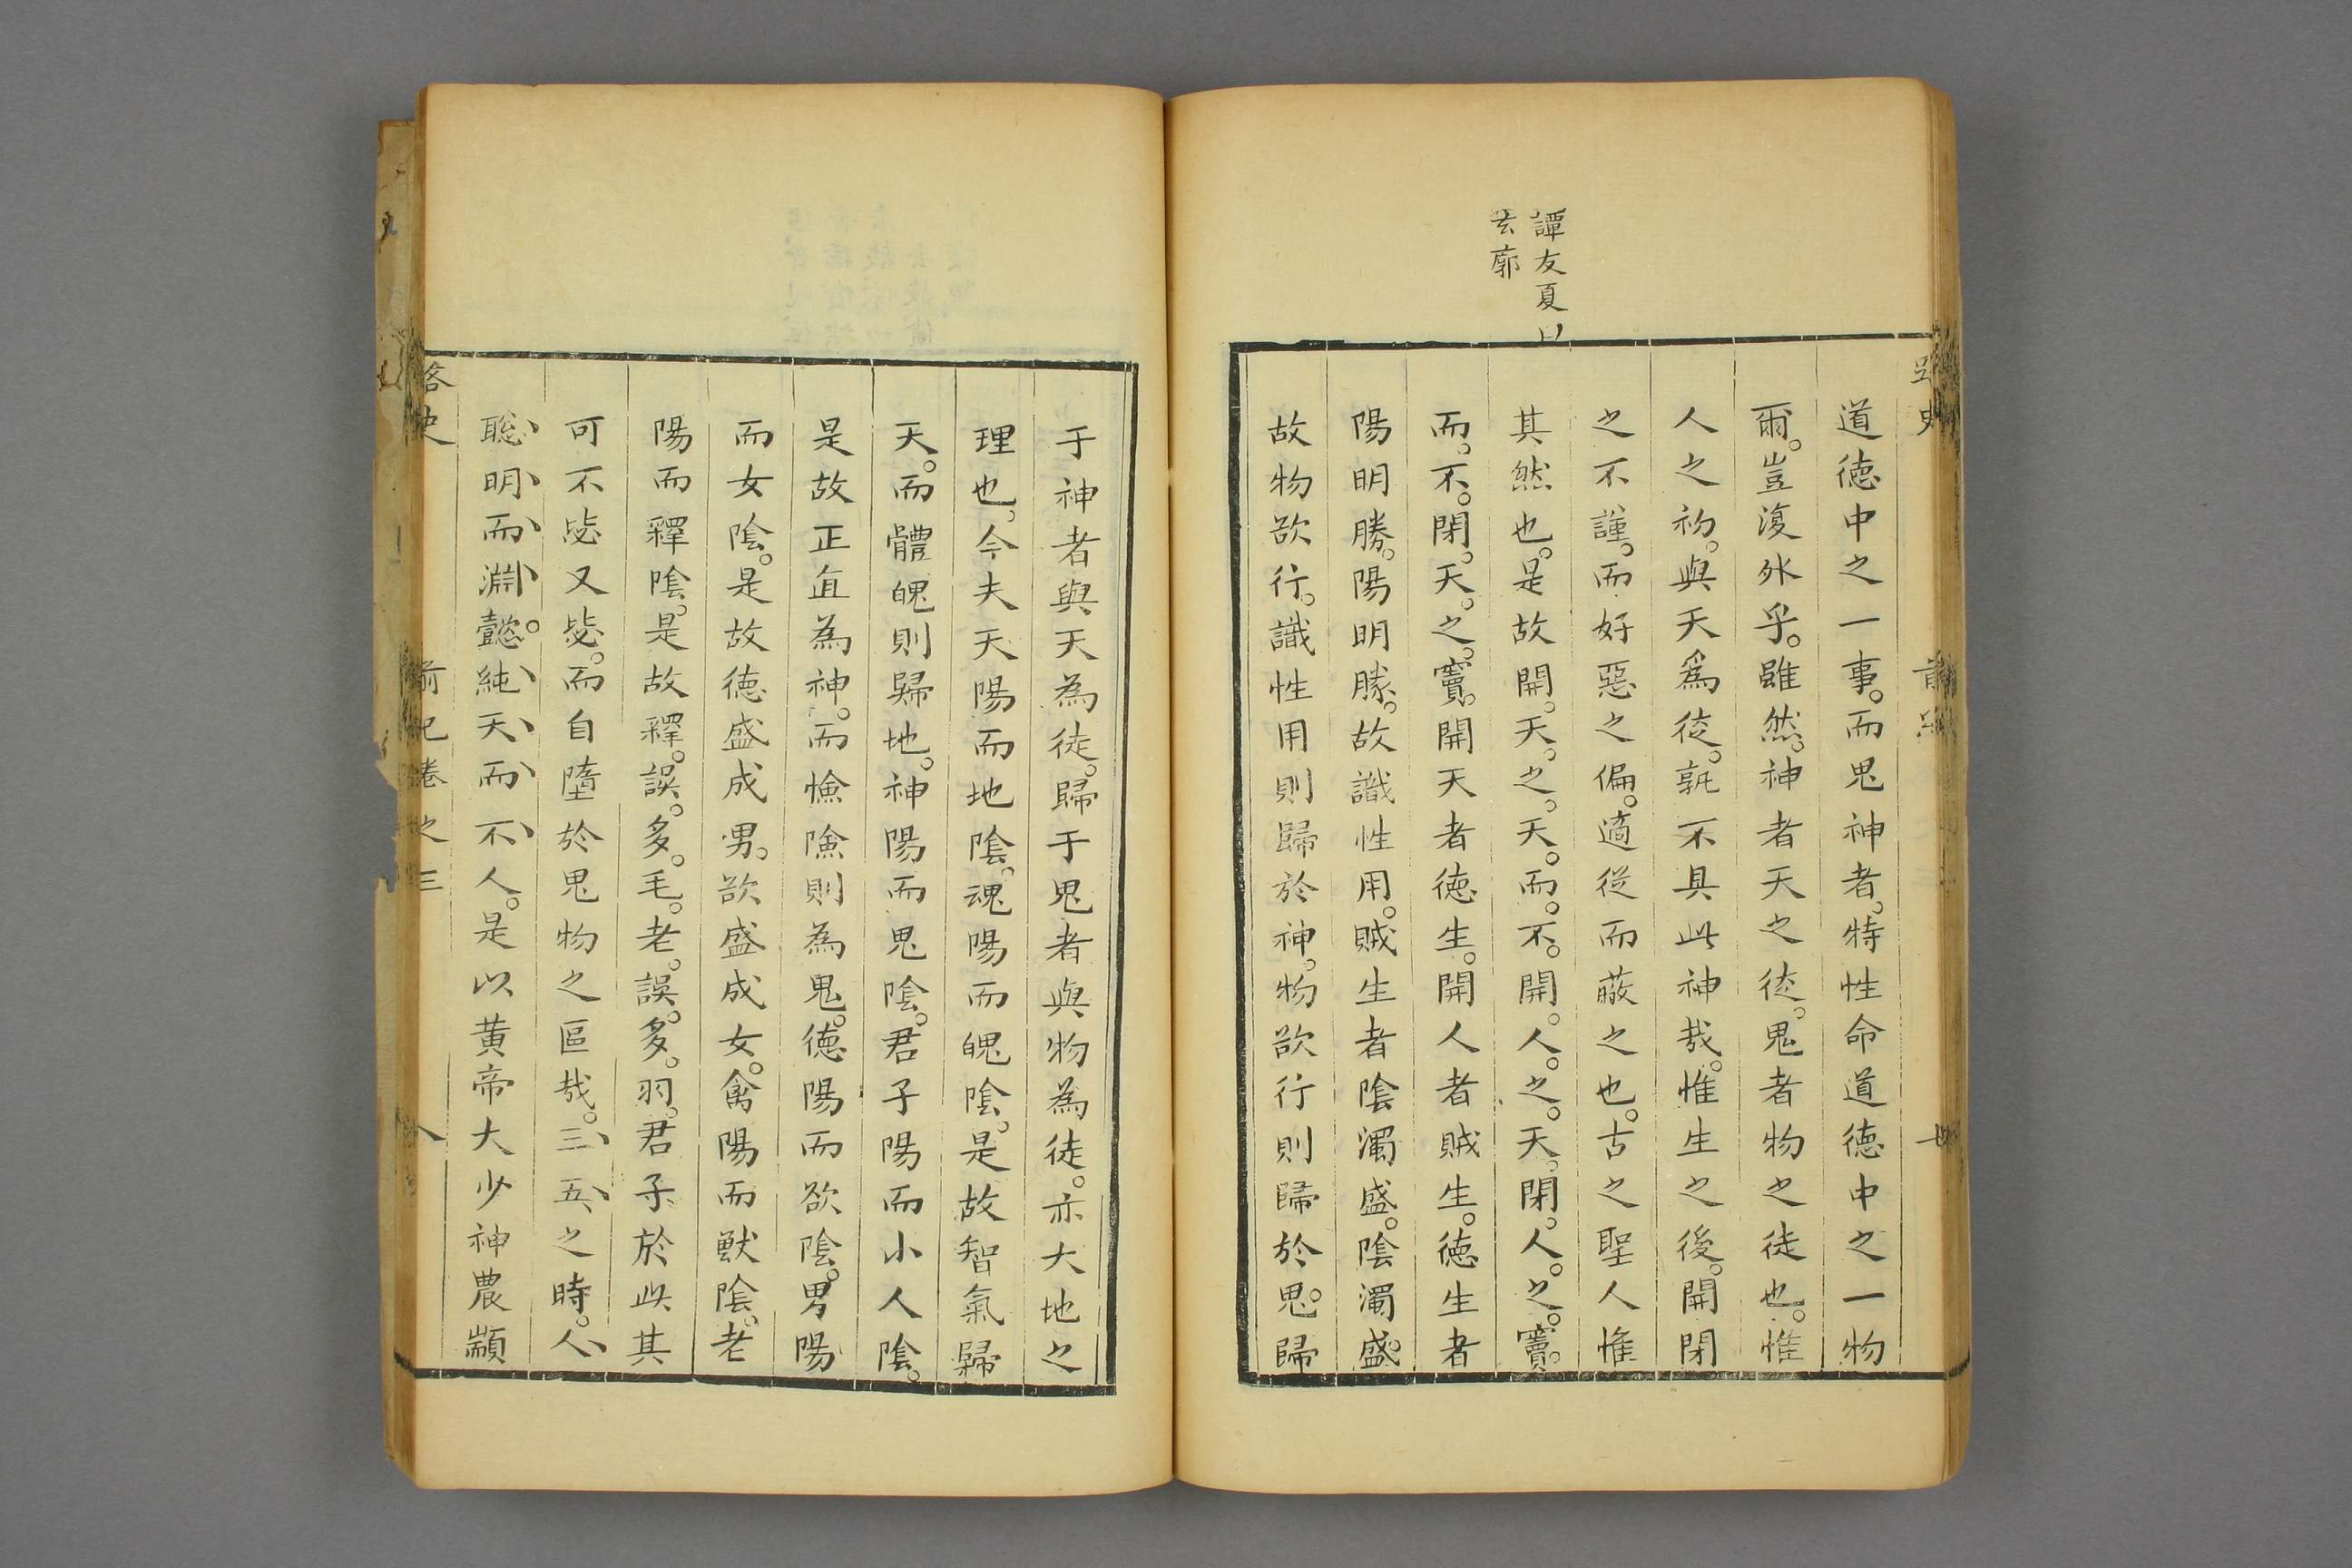 譚友夏曰
玄廓
道德中之一事。而鬼神者。特性命道德中之一物
爾。豈復外乎。雖然。神者天之徒。鬼者物之徒也。惟
人之初。與天爲徒。孰不具此神哉。惟生之後。開閉
之不謹。而好惡之偏。適從而蔽之也。古之聖人惟
其然也。是故開。天。之。天。而。不。開。人。之。天。閉。人。之。竇。
而。不。閉。天。之。竇。開天者德生。開人者賊生。德生者
陽明勝。陽明勝。故識性用。賊生者陰濁盛。陰濁盛。
故物欲行。識性用則歸於神。物欲行則歸於鬼。歸
于神者與天為徒。歸于鬼者與物為徒。亦大地之
理也。今夫天陽而地陰。魂陽而魄陰。是故智氣歸
天。而體魄則歸地。神陽而鬼陰。君子陽而小人陰。
是故正直為神。而憸險則為鬼。德陽而欲陰。男陽
而女陰。是故德盛成男。欲盛成女。禽陽而獸陰。老
陽而釋陰。是故釋。誤。多。毛。老。誤。多。羽。君子於此其
可不毖又毖。而自墮於鬼物之區哉。三、五、之時。人、
聡、明、而、淵、懿。純、天、而、不、人。是以黄帝大少神農顓
路史 前紀卷之三 八